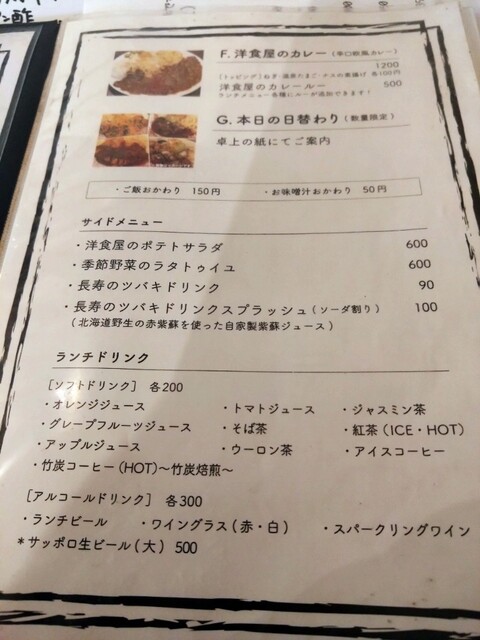 ン酢
F. 洋食屋のカレー（辛口欧風カレー）
1200
（トッピング）ねぎ・温泉たまご・ナスの素揚げ 各100円
洋食屋のカレールー 500
ランチメニュー各種にルーが追加できます！
G. 本日の日替わり（数量限定）
卓上の紙にてご案内
・ご飯おかわり 150円 ・お味噌汁おかわり 50円
サイドメニュー
・洋食屋のポテトサラダ 600
・季節野菜のラタトゥイユ 600
・長寿のツバキドリンク 90
・長寿のツバキドリンクスプラッシュ（ソーダ割り） 100
（北海道野生の赤紫蘇を使った自家製紫蘇ジュース）
ランチドリンク
［ソフトドリンク］ 各200
・オレンジジュース ・トマトジュース ・ジャスミン茶
・グレープフルーツジュース ・そば茶 ・紅茶（ICE・HOT）
・アップルジュース ・ウーロン茶 ・アイスコーヒー
・竹炭コーヒー（HOT）〜竹炭焙煎〜
［アルコールドリンク］ 各300
・ランチビール ・ワイングラス（赤・白） ・スパークリングワイン
＊サッポロ生ビール（大） 500